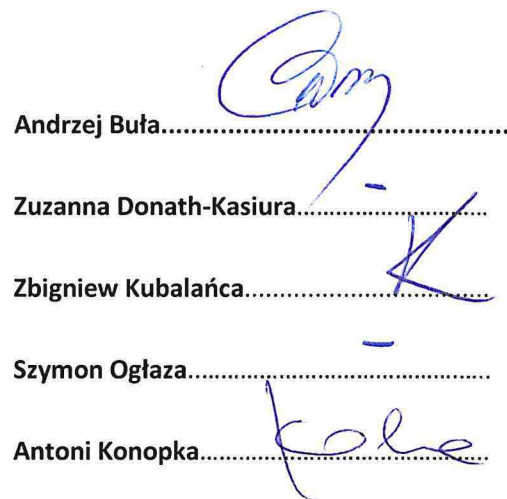 Andrzej Buła................................................
Zuzanna Donath-Kasiura........................... –
Zbigniew Kubalańca...................................
Szymon Ogłaza........................................... –
Antoni Konopka.........................................